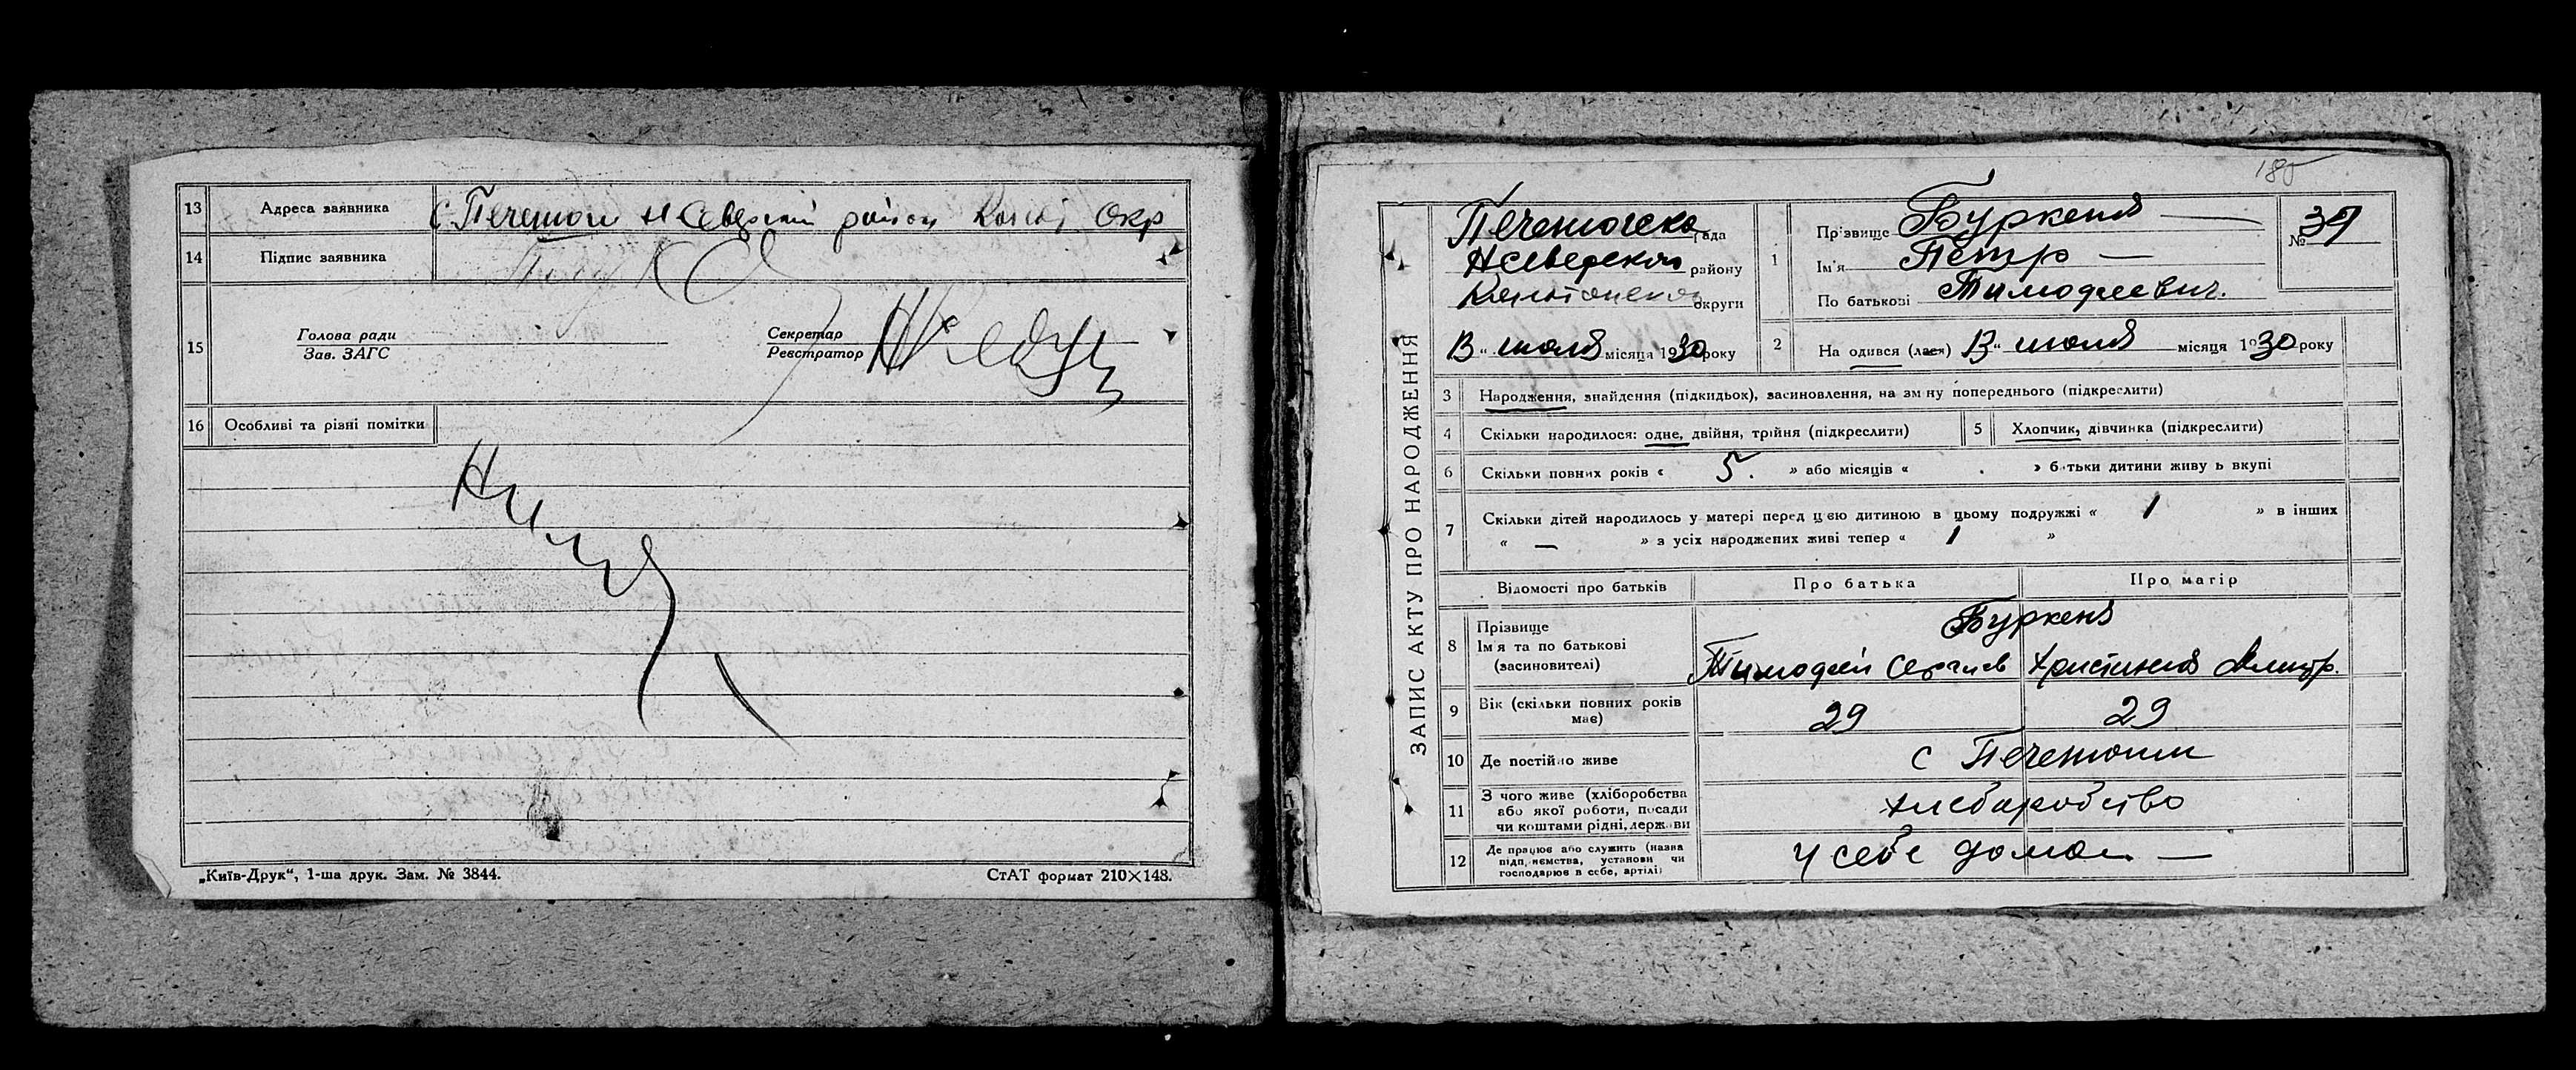 13 Адреса заявника с. Печенюги Н Северский район Кон Окр
14 Підпис заявника
15 Голова ради
Зав. ЗАГС
Секретар
Реєстратор
16 Особливі та різні помітки
„Київ-Друк“, 1-ша друк. Зам. № 3844.
СтАТ формат 210×148.
185
ЗАПИС АКТУ ПРО НАРОДЖЕННЯ
Печенюгска рада
Н Северского району
округи
13 “ июля місяця 1930 року
1 Прізвище Буркеня
Ім'я Петро
По батькові Тимофеевич.
№ 39
2 На одився (лася) 13 “ июля місяця 1930 року
3 Народження, знайдення (підкидьок), засиновлення, на зміну попереднього (підкреслити)
4 Скільки народилося: одне, двійня, трійня (підкреслити)
5 Хлопчик, дівчинка (підкреслити)
6 Скільки повних років « 5. » або місяців « . » батьки дитини живуть вкупі
7 Скільки дітей народилось у матері перед цією дитиною в цьому подружжі « 1 » в інших
« — » з усіх народжених живі тепер « 1 »
Відомості про батьків Про батька Про матір
8 Прізвище
Ім'я та по батькові
(засиновителі)
Буркеня
Тимофей Христиния Дмитр.
9 Вік (скільки повних років має) 29 29
10 Де постійно живе с Печенюги
11 З чого живе (хліборобства
або якої роботи, посади
чи коштами рідні, держави
хлебаробство
12 Де працює або служить (назва
підприємства, установи чи
господарює в себе, артілі)
у себе дома —